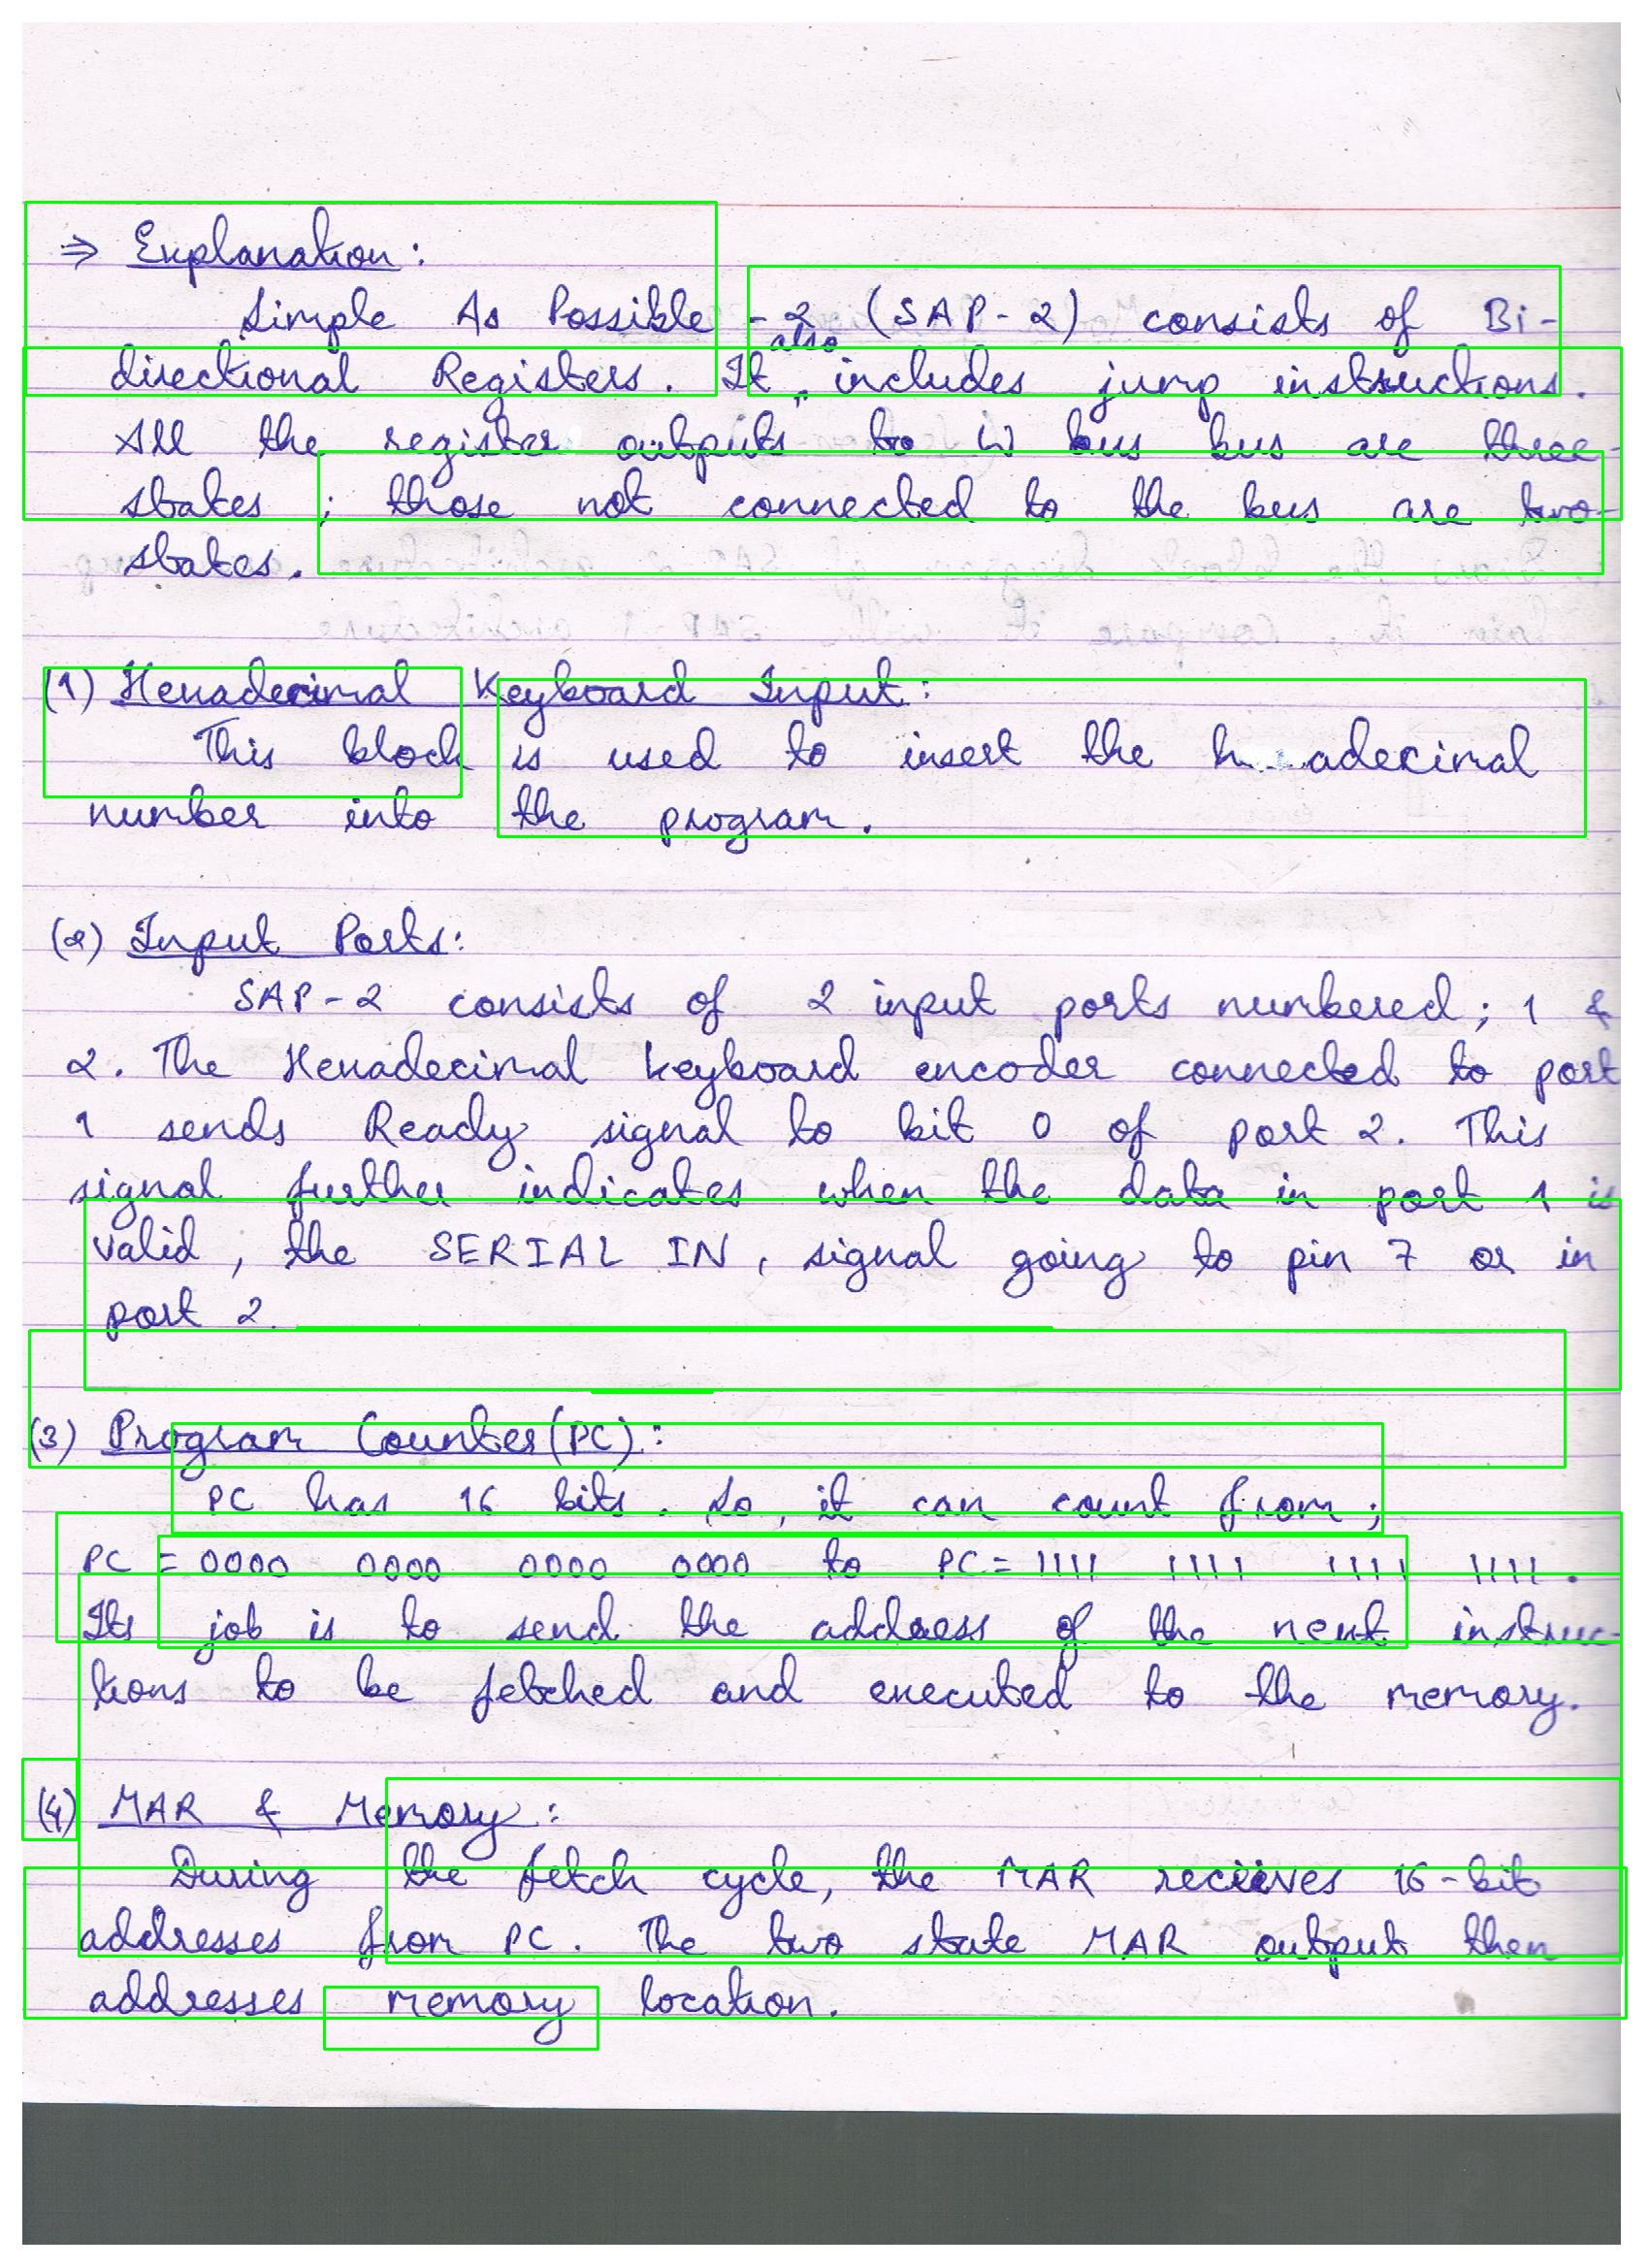 ⇒ Explanation:
Simple As Possible - 2 (SAP-2) consists of Bi-
directional Registers. It also includes jump instructions.
All the register outputs to W bus bus are three-
states ; those not connected to the bus are two-
states.
(1) Hexadecimal Keyboard Input:
This block is used to insert the h adecimal
number into the program.
(2) Input Ports:
SAP-2 consists of 2 input ports numbered; 1 &
2. The Hexadecimal keyboard encoder connected to port
1 sends Ready signal to bit 0 of port 2. This
signal further indicates when the data in port 1 is
valid, the SERIAL IN, signal going to pin 7 or in
port 2.
(3) Program Counter(PC):
PC has 16 bits. So, it can count from;
PC = 0000 0000 0000 0000 to PC = 1111 1111 1111 1111.
Its job is to send the address of the next instruc-
tions to be fetched and executed to the memory.
(4) MAR & Memory:
During the fetch cycle, the MAR receives 16-bit
addresses from PC. The two state MAR output then
addresses memory location.